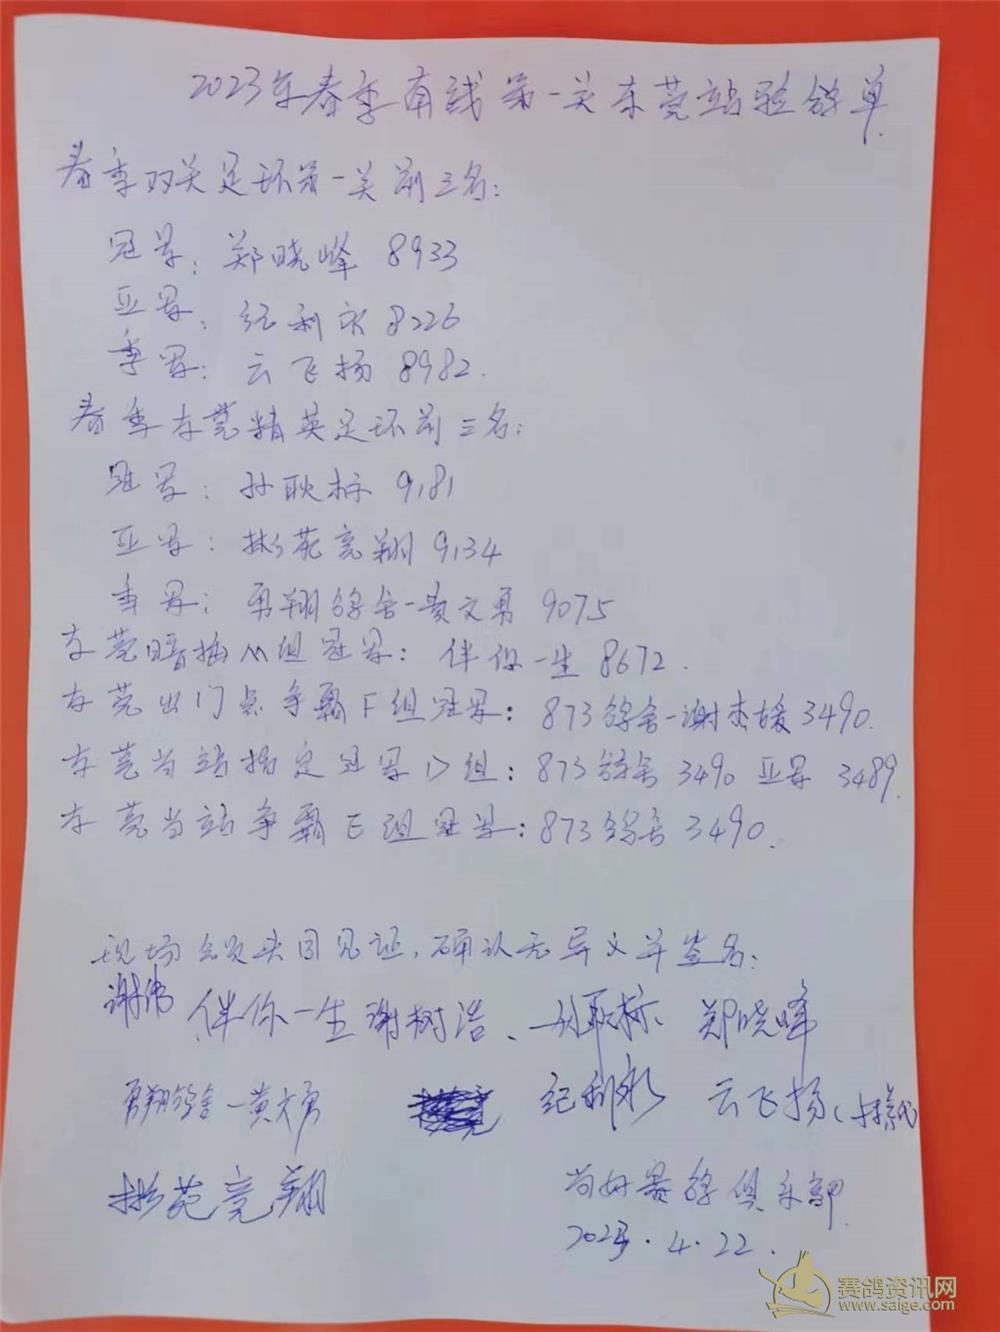 2023年春季南线第一关东莞站验鸽单
春季双关足环第一关前三名:
冠军: 郑晓峰 8933
亚军: 纪利永 8226
季军: 云飞扬 8982.
春季东莞精英足环前三名:
冠军: 孙耿标 9181
亚军: 彬苑亮翔 9134
季军: 勇翔鸽舍-黄文勇 9075
东莞暗插M组冠军: 伴你一生 8672.
东莞出门点争霸F组冠军: 873鸽舍-谢杰媛 3490.
东莞当站指定冠军D组: 873鸽舍 3490 亚军 3489.
东莞当站争霸E组冠军: 873鸽舍 3490.
现场鸽友共同见证,确认无异义并签名:
谢伟 伴你一生 谢树浩、孙耿标 郑晓峰
勇翔鸽舍-黄文勇 纪利永 云飞扬
彬苑亮翔
尚好赛鸽俱乐部
2023.4.22.
赛鸽资讯网
www.saige.com